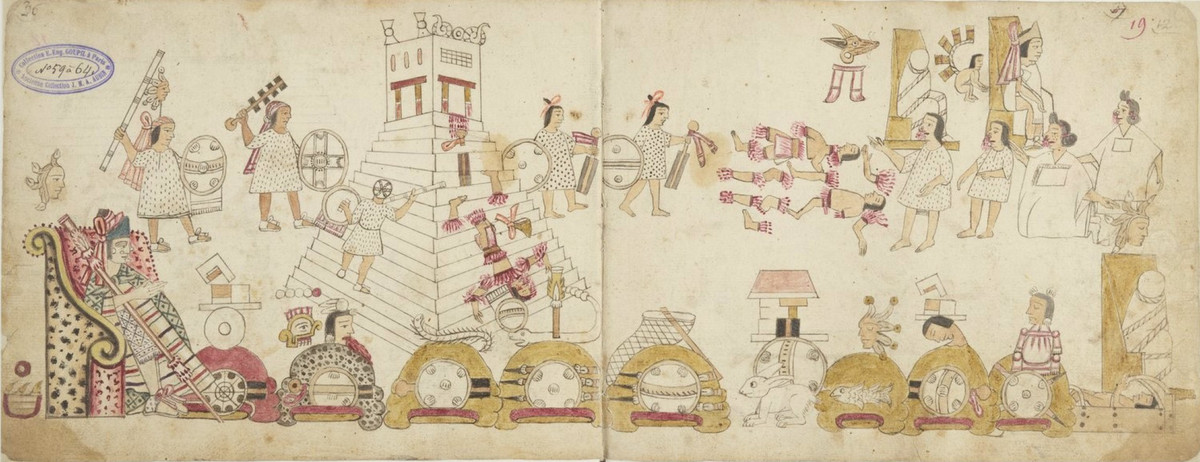 36
Collection E. Eug. GOUPIL à Paris
Nº 59 à 64
Ancienne Collection J. M. A. AUBIN
19